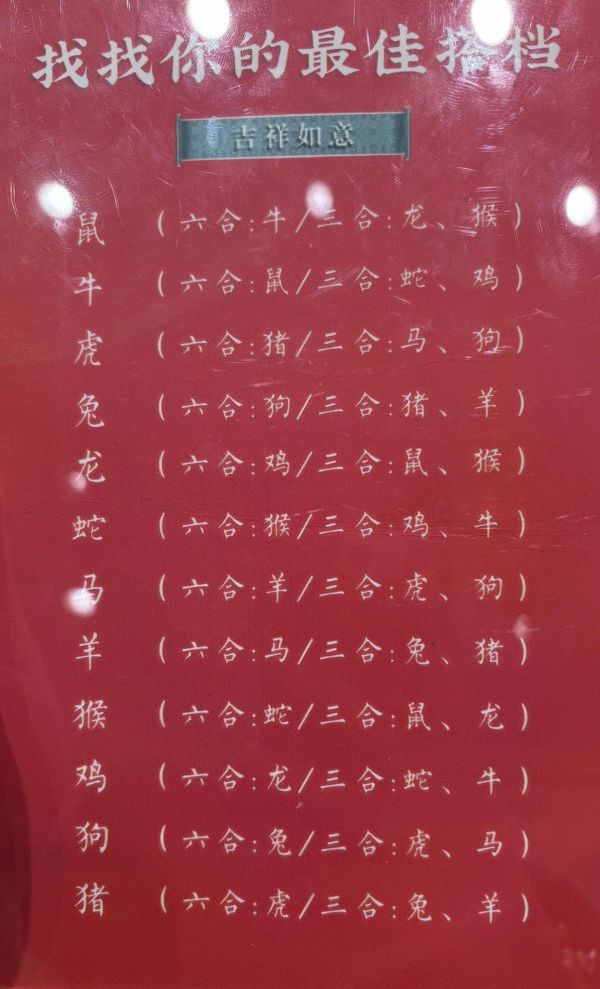 找找你的最佳搭档
吉祥如意
鼠 (六合:牛/三合:龙、猴)
牛 (六合:鼠/三合:蛇、鸡)
虎 (六合:猪/三合:马、狗)
兔 (六合:狗/三合:猪、羊)
龙 (六合:鸡/三合:鼠、猴)
蛇 (六合:猴/三合:鸡、牛)
马 (六合:羊/三合:虎、狗)
羊 (六合:马/三合:兔、猪)
猴 (六合:蛇/三合:鼠、龙)
鸡 (六合:龙/三合:蛇、牛)
狗 (六合:兔/三合:虎、马)
猪 (六合:虎/三合:兔、羊)